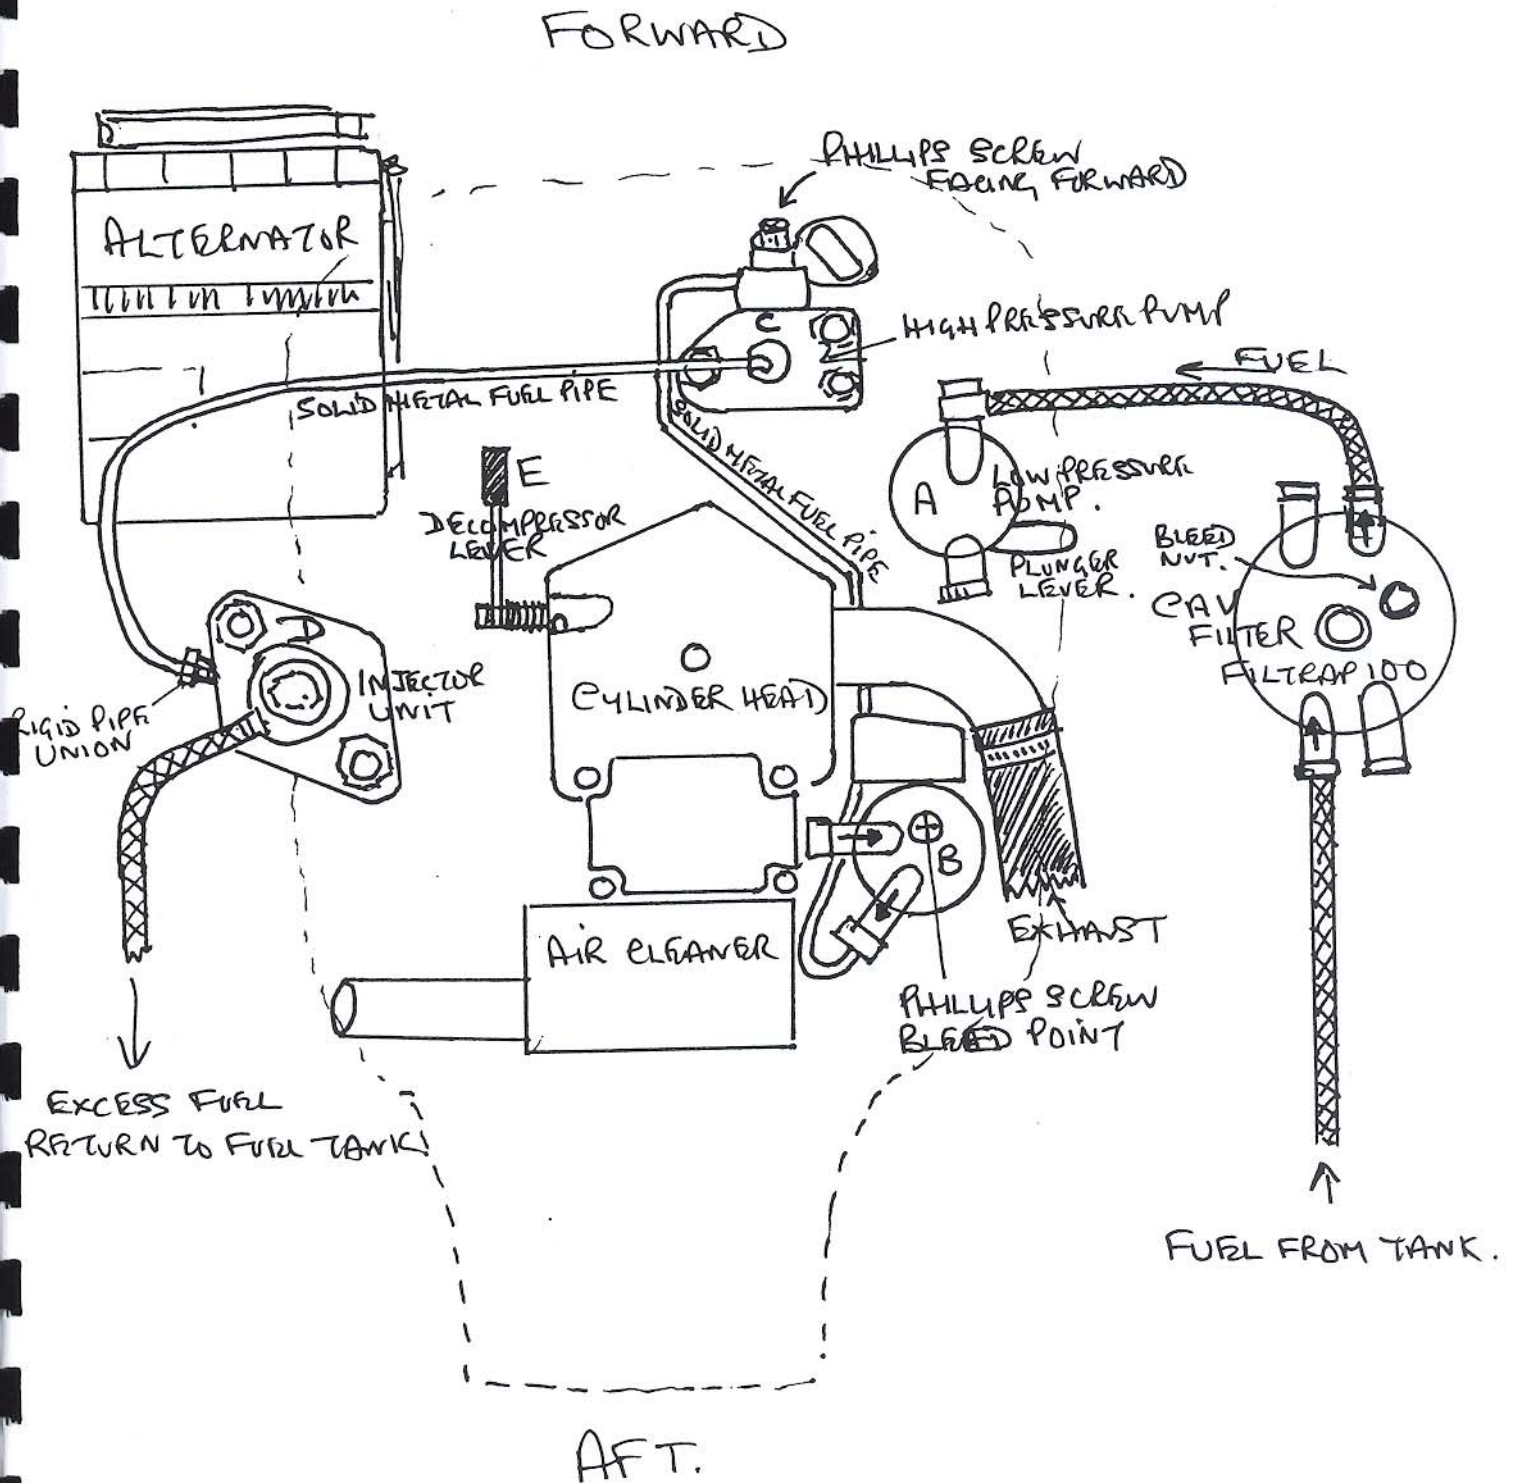 FORWARD
PHILLIPS SCREW
FACING FORWARD
ALTERNATOR
C
HIGH PRESSURE PUMP
FUEL
SOLID METAL FUEL PIPE
SOLID METAL FUEL PIPE
E
DECOMPRESSOR
LEVER
A
LOW PRESSURE
PUMP.
PLUNGER
LEVER.
BLEED
NUT.
CAV
FILTER
FILTRAP 100
D
INJECTOR
UNIT
RIGID PIPE
UNION
CYLINDER HEAD
B
EXHAUST
AIR CLEANER
PHILLIPS SCREW
BLEED POINT
EXCESS FUEL
RETURN TO FUEL TANK!
FUEL FROM TANK.
AFT.